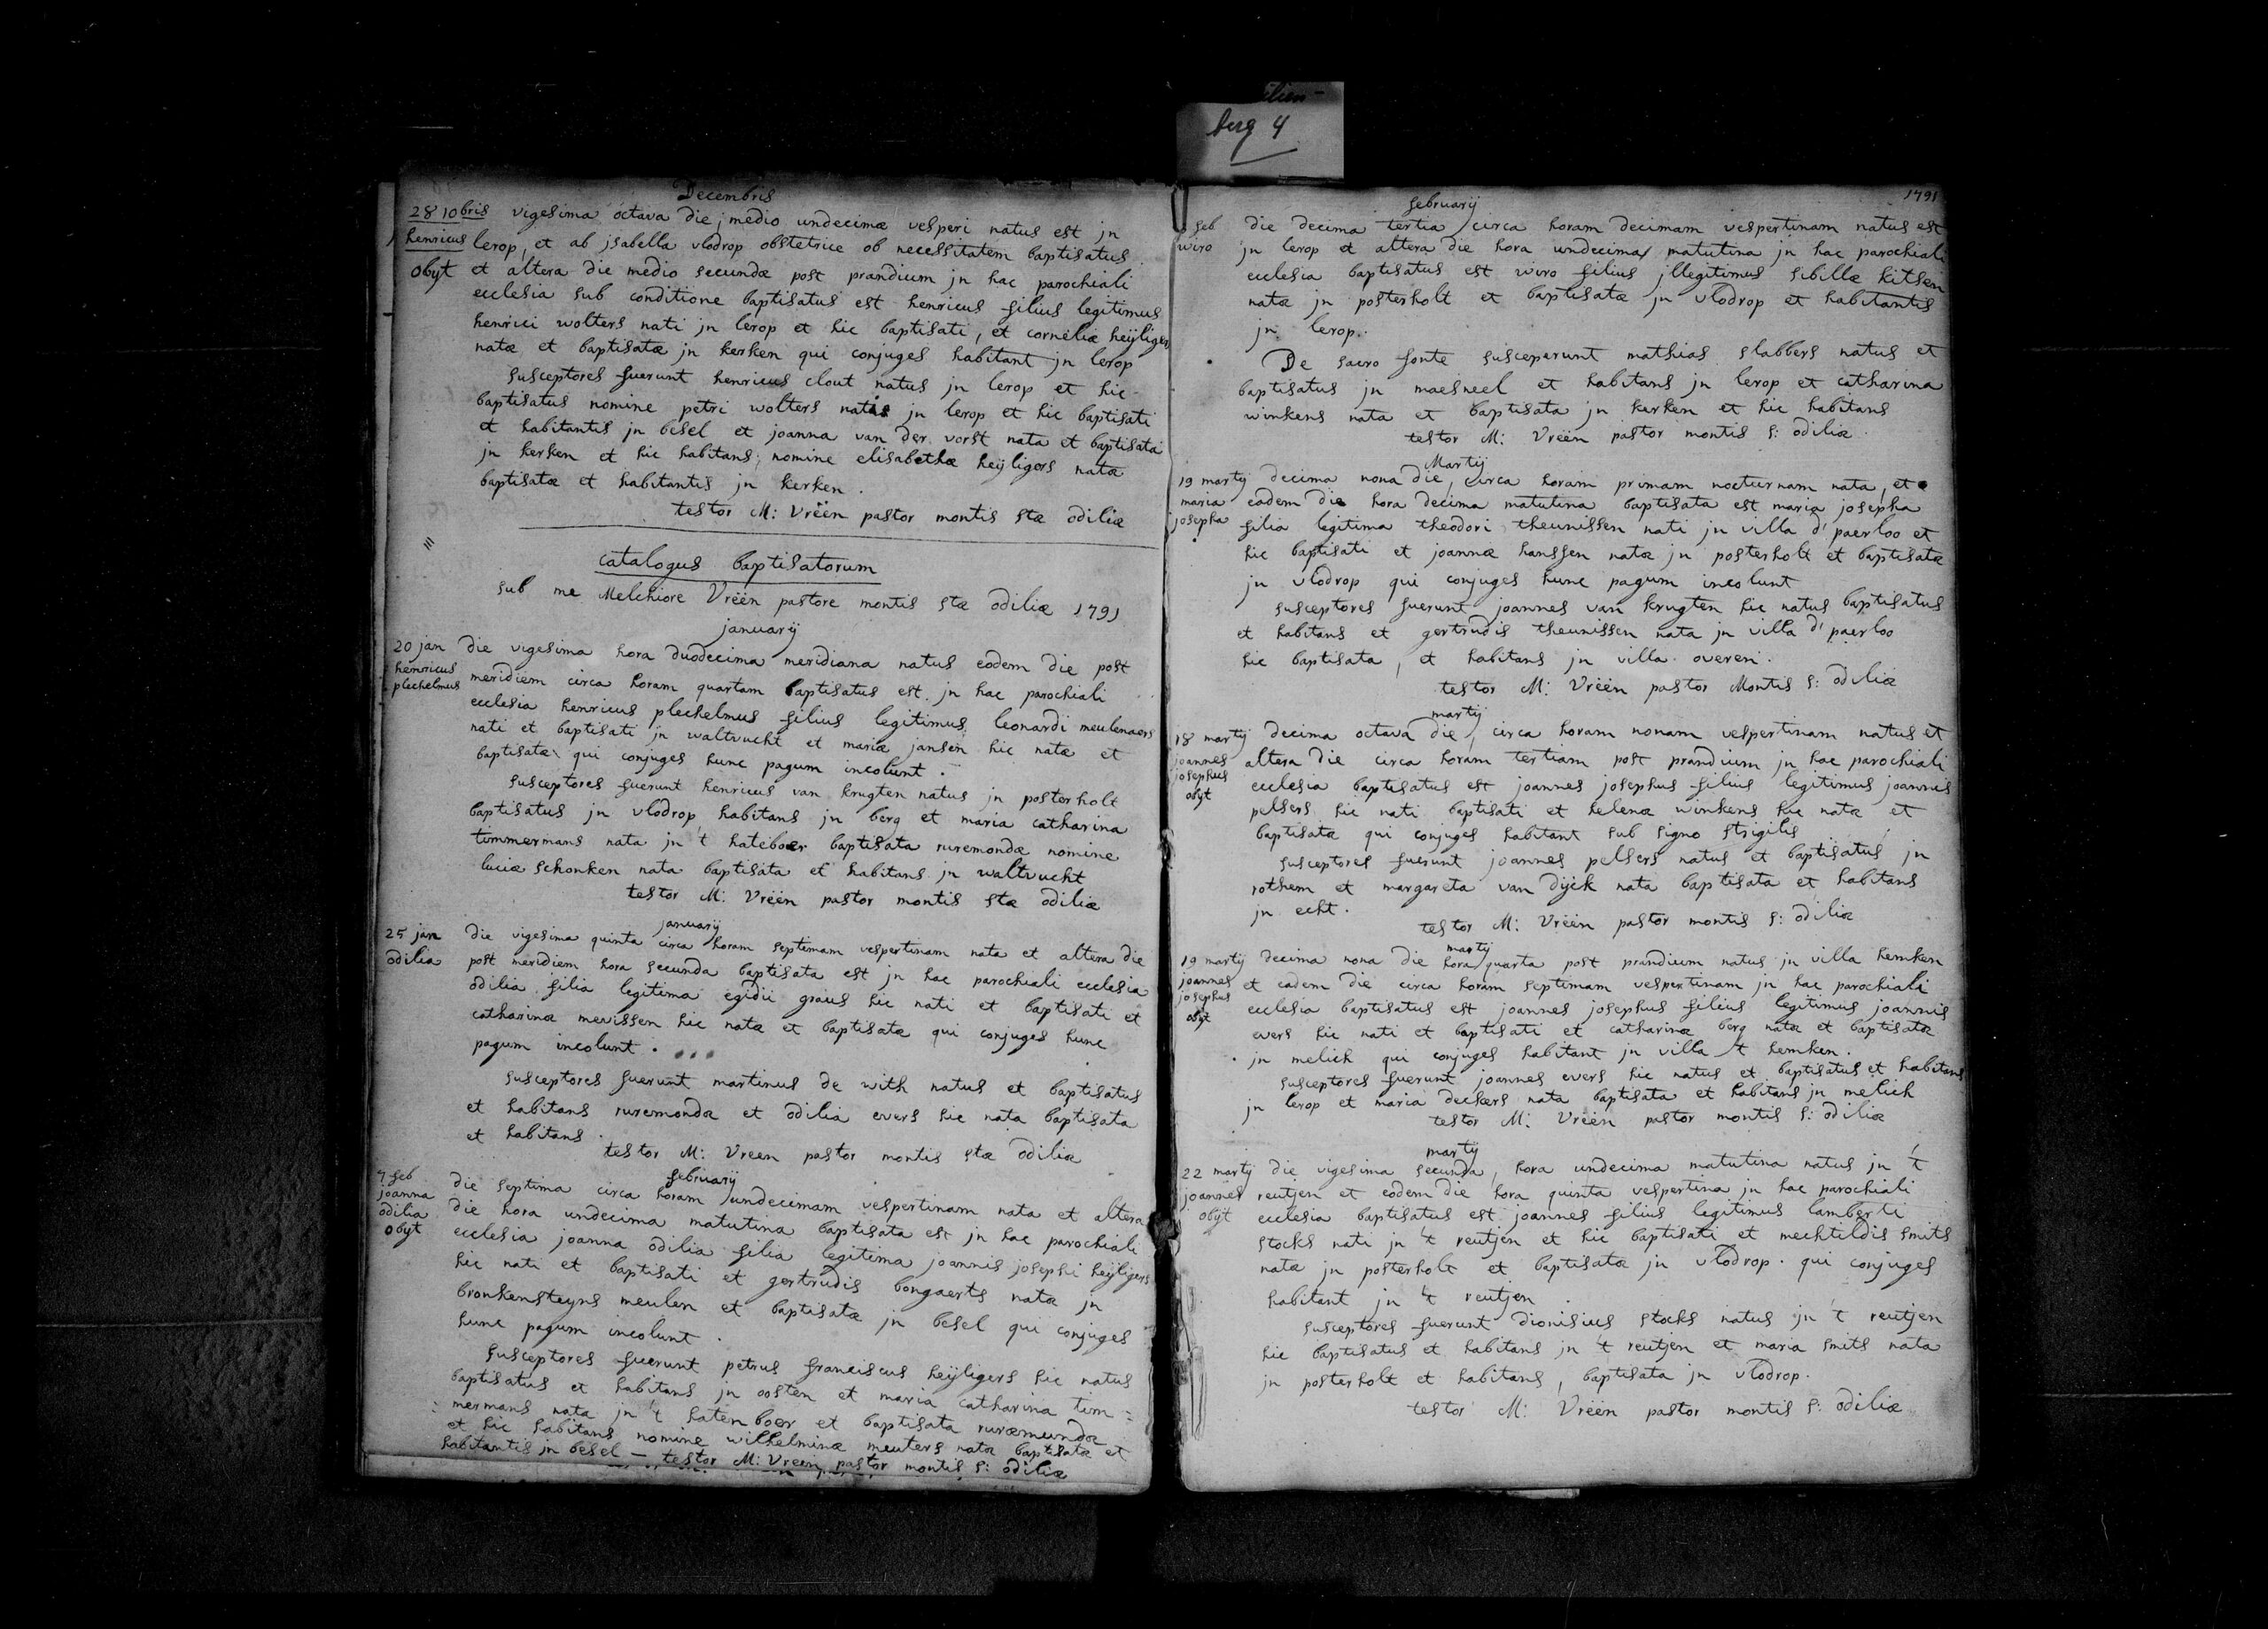 lien-
berg 4
Decembris
28 10bris vigesima octava die medio undecimæ vesperi natus est jn
henricus lerop, et ab jsabella vlodrop obstetrice ob necessitatem baptisatus
obyt et altera die medio secundæ post prandium jn hac parochiali
ecclesia sub conditione baptisatus est henricus filius legitimus
henrici wolters nati jn lerop et hic baptisati, et corneliæ heÿligers
natæ et baptisatæ jn kerken qui conjuges habitant jn lerop
susceptores fuerunt henricus clout natus jn lerop et hic
baptisatus nomine petri wolters natis jn lerop et hic baptisati
et habitantis jn besel et joanna van der vorst nata et baptisata
jn kerken et hic habitans, nomine elisabethæ heÿligers natæ
baptisatæ et habitantis jn kerken.
testor M: Vrëën pastor montis stæ odiliæ
catalogus baptisatorum
sub me Melchiore Vrëën pastore montis stæ odiliæ 1791
januarij
20 jan die vigesima hora duodecima meridiana natus eodem die post
henricus meridiem circa horam quartam baptisatus est jn hac parochiali
plechelmus ecclesia henricus plechelmus filius legitimus leonardi meulenaers
nati et baptisati jn waltvucht et mariæ jansen hic natæ et
baptisatæ qui conjuges hunc pagum incolunt.
susceptores fuerunt henricus van krugten natus jn posterholt
baptisatus jn vlodrop habitans jn berg et maria catharina
timmermans nata jn 't hateboer baptisata ruremondæ nomine
luciæ schonken nata baptisata et habitans jn waltvucht
testor M: Vrëën pastor montis stæ odiliæ
januarij
25 jan die vigesima quinta circa horam septimam vespertinam nata et altera die
odilia post meridiem hora secunda baptisata est jn hac parochiali ecclesia
odilia filia legitima egidii graus hic nati et baptisati et
catharinæ mevissen hic natæ et baptisatæ qui conjuges hunc
pagum incolunt.
susceptores fuerunt martinus de with natus et baptisatus
et habitans ruremondæ et odilia evers hic nata baptisata
et habitans.
testor M: Vreen pastor montis stæ odiliæ
februarij
7 feb die septima circa horam undecimam vespertinam nata et altera
joanna die hora undecima matutina baptisata est jn hac parochiali
odilia ecclesia joanna odilia filia legitima joannis josephi heÿligers
obyt hic nati et baptisati et gertrudis bongaerts natæ jn
bronkensteyns meulen et baptisatæ jn besel qui conjuges
hunc pagum incolunt.
susceptores fuerunt petrus franciscus heÿligers hic natus
baptisatus et habitans jn oosten et maria catharina tim=
=mermans nata jn 't hatenboer et baptisata ruræmundæ
et hic habitans nomine wilhelminæ meuters natæ baptisatæ et
habitantis jn besel — testor M: Vreen pastor montis s: odiliæ
1791
februarij
feb die decima tertia circa horam decimam vespertinam natus est
wiro jn lerop et altera die hora undecima matutina jn hac parochiali
ecclesia baptisatus est wiro filius jllegitimus sibillæ kitsen
natæ jn posterholt et baptisatæ jn vlodrop et habitantis
jn lerop.
De sacro fonte susceperunt mathias slabbers natus et
baptisatus jn maesneel et habitans jn lerop et catharina
winkens nata et baptisata jn kerken et hic habitans
testor M: Vrëën pastor montis s: odiliæ
Martij
19 martij decima nona die, circa horam primam nocturnam nata, et
maria eadem die hora decima matutina baptisata est maria josepha
josepha filia legitima theodori theunissen nati jn villa d' paerloo et
hic baptisati et joannæ hanssen natæ jn posterholt et baptisatæ
jn vlodrop qui conjuges hunc pagum incolunt
susceptores fuerunt joannes van krugten hic natus baptisatus
et habitans et gertrudis theunissen nata jn villa d' paerloo
hic baptisata, et habitans jn villa overen.
testor M: Vrëën pastor Montis s: odiliæ
martij
18 martij decima octava die, circa horam nonam vespertinam natus et
joannes altera die circa horam tertiam post prandium jn hac parochiali
josephus ecclesia baptisatus est joannes josephus filius legitimus joannis
obyt pelsers hic nati baptisati et helenæ winkens hic natæ et
baptisatæ qui conjuges habitant sub signo strigilis
susceptores fuerunt joannes pelsers natus et baptisatus jn
rothem et margareta van dÿck nata baptisata et habitans
jn echt.
testor M: Vrëën pastor montis s: odiliæ
martij
19 martij decima nona die hora quarta post prandium natus jn villa hemken
joannes et eadem die circa horam septimam vespertinam jn hac parochiali
josephus ecclesia baptisatus est joannes josephus filius legitimus joannis
obyt evers hic nati et baptisati et catharinæ berg natæ et baptisatæ
jn melick qui conjuges habitant jn villa 't hemken.
susceptores fuerunt joannes evers hic natus et baptisatus et habitans
jn lerop et maria deckers nata baptisata et habitans jn melick
testor M: Vrëën pastor montis s: odiliæ
martij
22 martij die vigesima secunda, hora undecima matutina natus jn 't
joannes reutjen et eodem die hora quinta vespertina jn hac parochiali
obyt ecclesia baptisatus est joannes filius legitimus lamberti
stocks nati jn 't reutjen et hic baptisati et mechtildis smits
natæ jn posterholt et baptisatæ jn vlodrop. qui conjuges
habitant jn 't reutjen.
susceptores fuerunt dionisius stocks natus jn 't reutjen
hic baptisatus et habitans jn 't reutjen et maria smits nata
jn posterholt et habitans, baptisata jn vlodrop.
testor M: Vrëën pastor montis s: odiliæ